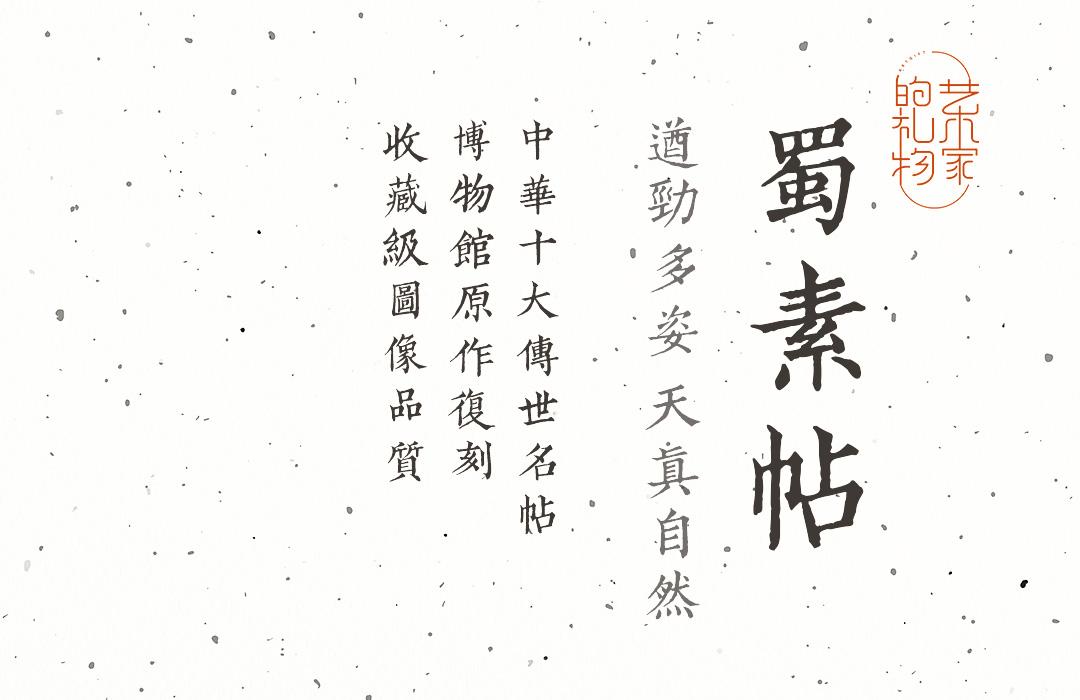 艺术家
的礼物
蜀素帖
遒勁多姿 天真自然
中華十大傳世名帖
博物館原作復刻
收藏級圖像品質